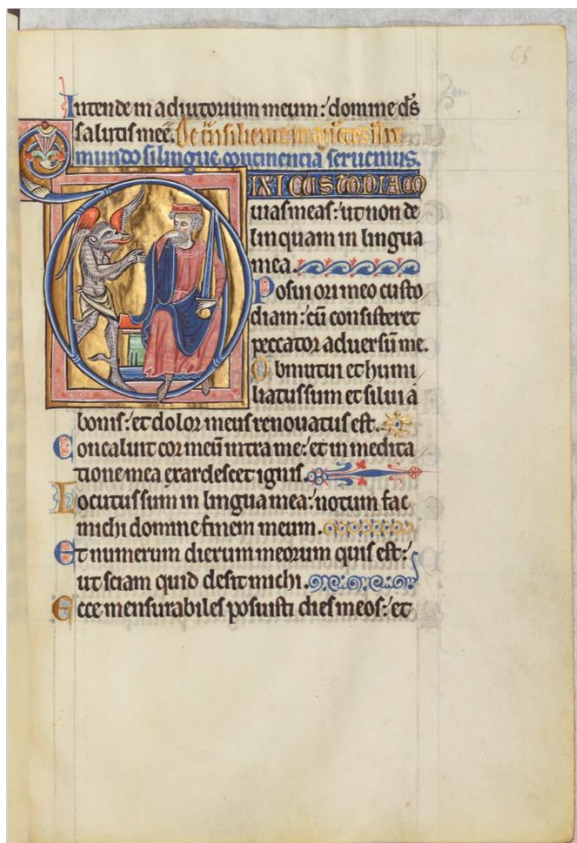 65
Intende in adiutorium meum: domine ds̄
salutis meę. De
mundo si lingue continentia seruemus.
DIXI CUSTODIAM
uias meas: ut non de
linquam in lingua
mea.
Posui ori meo custo
diam: cū consisteret
peccator aduersū me.
Obmutui et humi
liatus sum et silui a
bonis: et dolor meus renouatus est.
Concaluit cor meū intra me: et in medita
tione mea exardescet ignis.
Locutus sum in lingua mea: notum fac
michi domine finem meum.
Et numerum dierum meorum quis est:
ut sciam quid desit michi.
Ecce mensurabiles posuisti dies meos: et
38